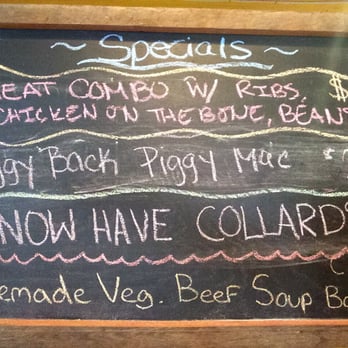 ~ Specials ~
EAT COMBO W/ RIBS, $
CHICKEN ON THE BONE, BEANS
ggy Back Piggy Mac $
NOW HAVE COLLARDS
emade Veg. Beef Soup Bo